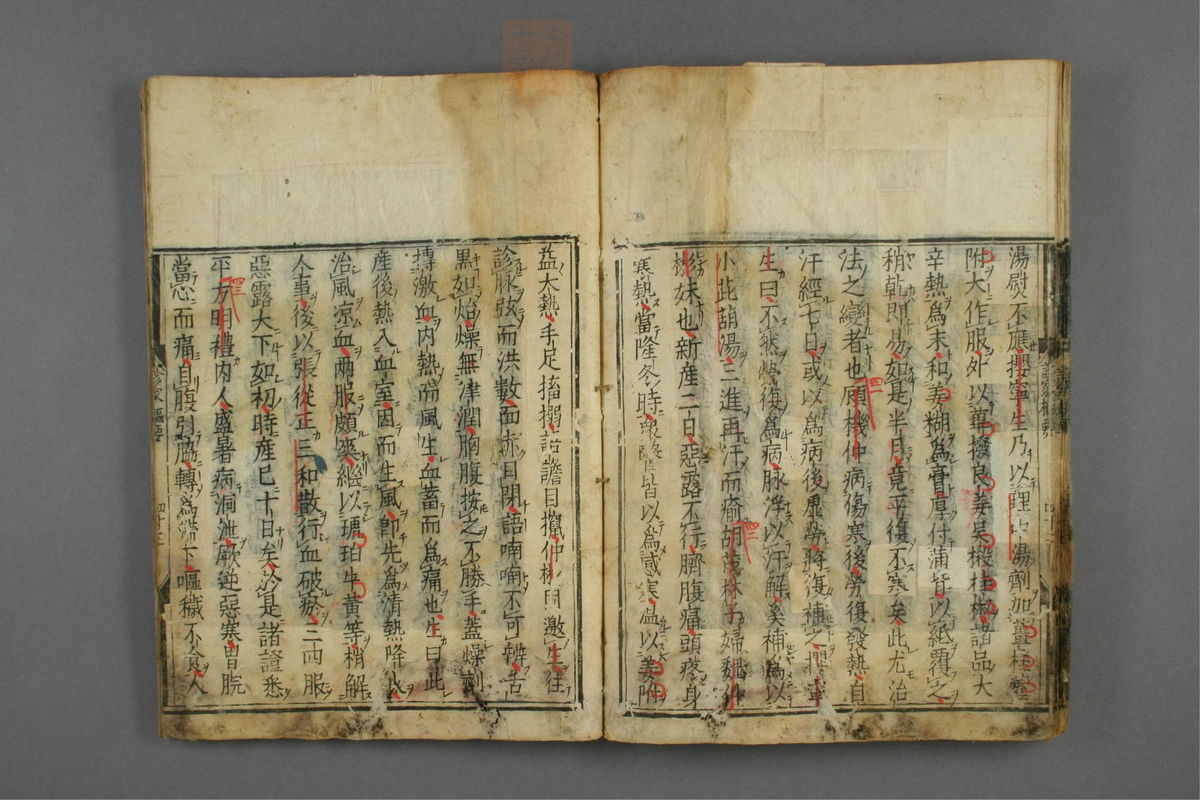 湯熨不應攖寧生乃以理中湯劑加薑桂
附大作服外以蓽撥良姜吳椒桂椒諸品大
辛熱為末和姜糊為膏厚付滿皆以紙覆之
稍乾即易如是半月竟平復不寒矣此尤治
法之變者也顧機仲病傷寒後勞復發熱自
汗經七日或以為病後虛勞將復補之攖寧
生曰不然勞復為病脉浮以汗解奚補為以
小茈葫湯三進再汗而瘉胡茂林子婦魏仲
彬妹也新産二日惡露不行臍腹痛頭疼身
寒熱當隆冬時衆醫皆以為感寒温以姜附
益大熱手足搐搦語譫目攛仲彬邀生往
診脉弦而洪數面赤目閉語喃喃不可辨舌
黒如炲燥無津潤胸腹按之不勝手蓋燥劑
搏激血內熱而風生血蓄而為痛也生曰此
産後熱入血室因而生風即先為清熱降火
治風凉血兩服頗爽繼以琥珀牛黄等稍解
人事後以張從正三和散行血破瘀三四服
惡露大下如初時産已十日矣於是諸證悉
平方明禮內人盛暑病洞泄厥逆惡寒胃脘
當心而痛自腹引脇轉為滯下嘔穢不食人